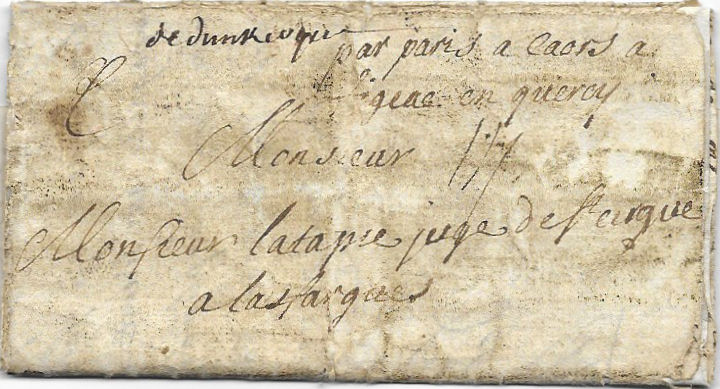 de dunkerque
par paris a Caors a
figeac en quercy
Monsieur
Monsieur latapie juge de St cirgue
a lasfargues